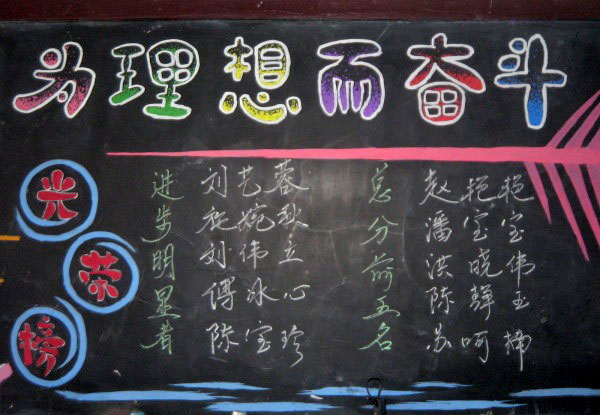 为理想而奋斗
光荣榜
进步明显者
刘艺蓉
婉秋
刘伟立
傅冰心
陈宝珍
总分前五名
赵艳艳
潘宝宝
洪晓伟
陈玉
苏呵楠